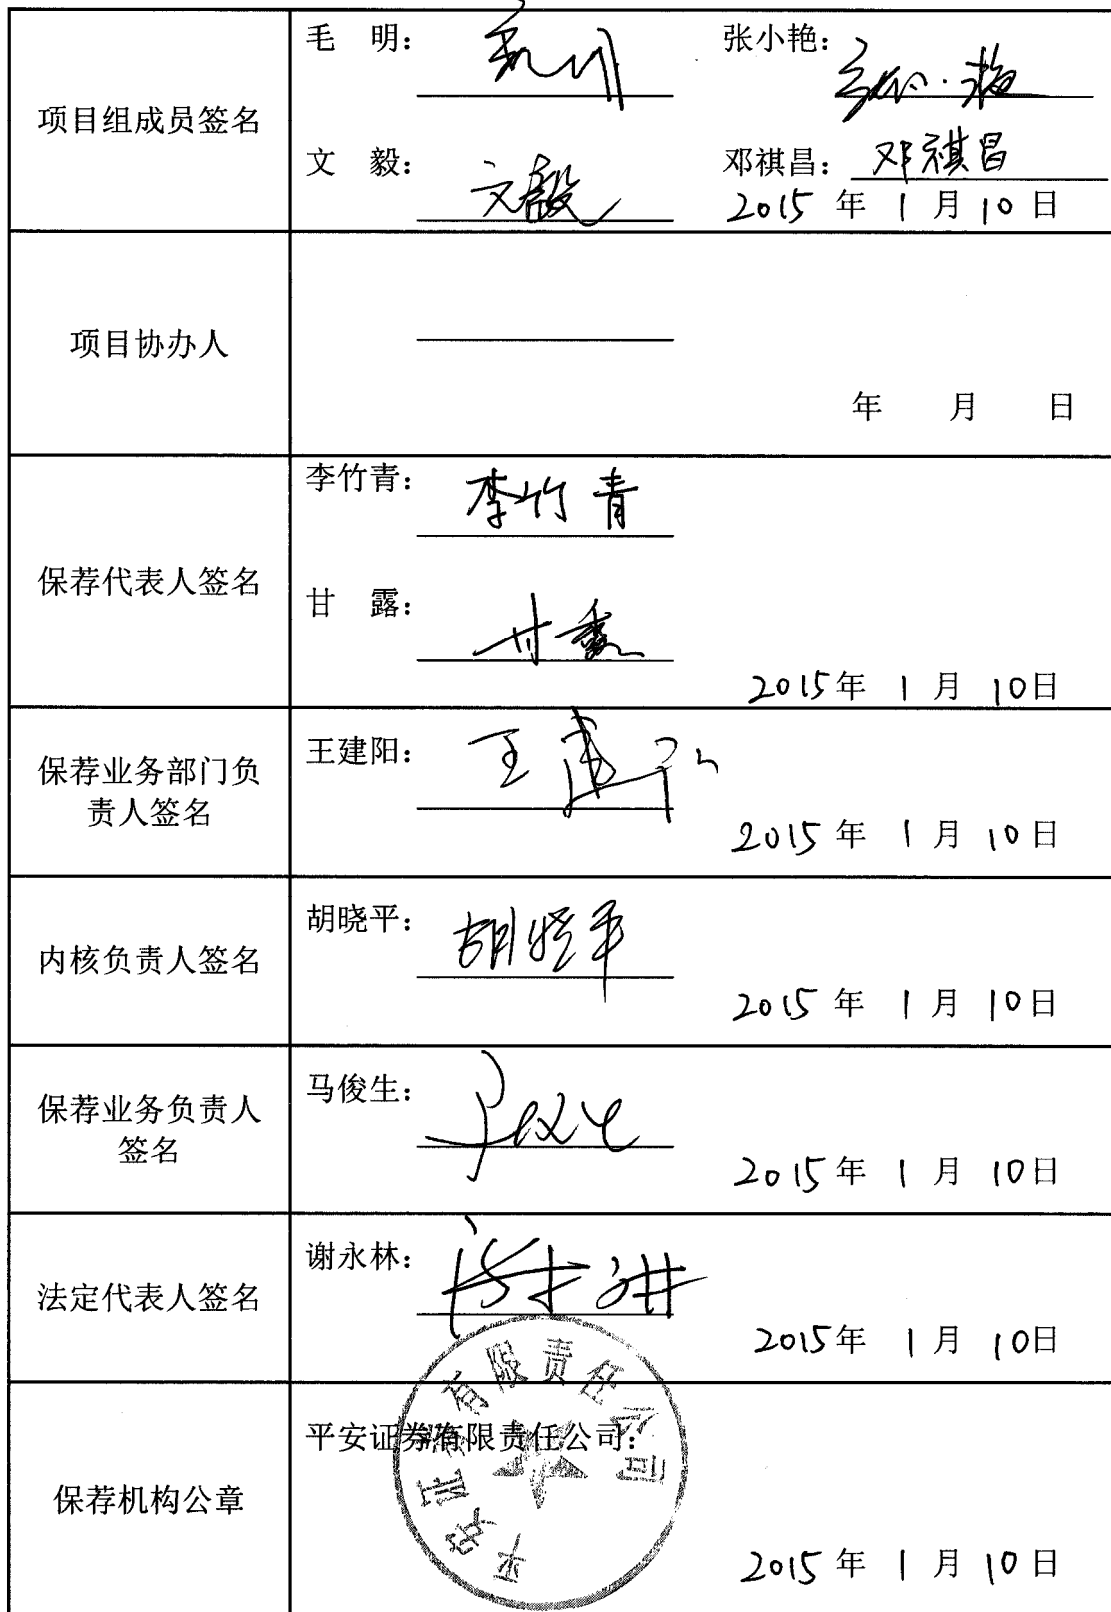 项目组成员签名
毛 明: 张小艳:
文 毅: 文毅 邓祺昌: 邓祺昌
2015 年 1 月 10 日
项目协办人
年 月 日
保荐代表人签名
李竹青: 李竹青
甘 露: 甘露
2015年 1 月 10日
保荐业务部门负
责人签名
王建阳: 王建阳
2015 年 1 月 10日
内核负责人签名
胡晓平: 胡晓平
2015 年 1 月 10日
保荐业务负责人
签名
马俊生:
2015年 1 月 10日
法定代表人签名
谢永林:
2015年 1 月 10日
保荐机构公章
平安证券有限责任公司:
平安证券有限责任公司
2015 年 1 月 10 日